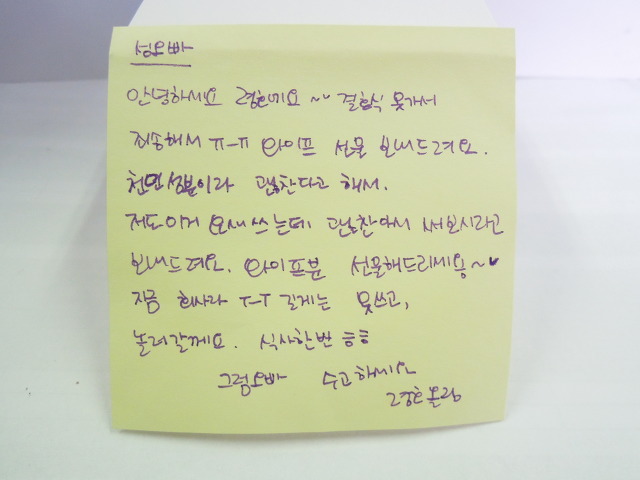 섬오빠
안녕하세요 경환예요 ~~ 결혼식 못가서
죄송해서 ㅠ-ㅠ 와이프 선물 보내드려요.
천연성분이라 괜찮다고 해서.
저도이거 요새쓰는데 괜찮아서 써보시라고
보내드려요. 와이프분 선물해드리세용~♥
지금 회사라 ㅜ-ㅜ 길게는 못쓰고,
놀러갈께요. 식사한번 ㅎㅎ
그럼오빠 수고하세요